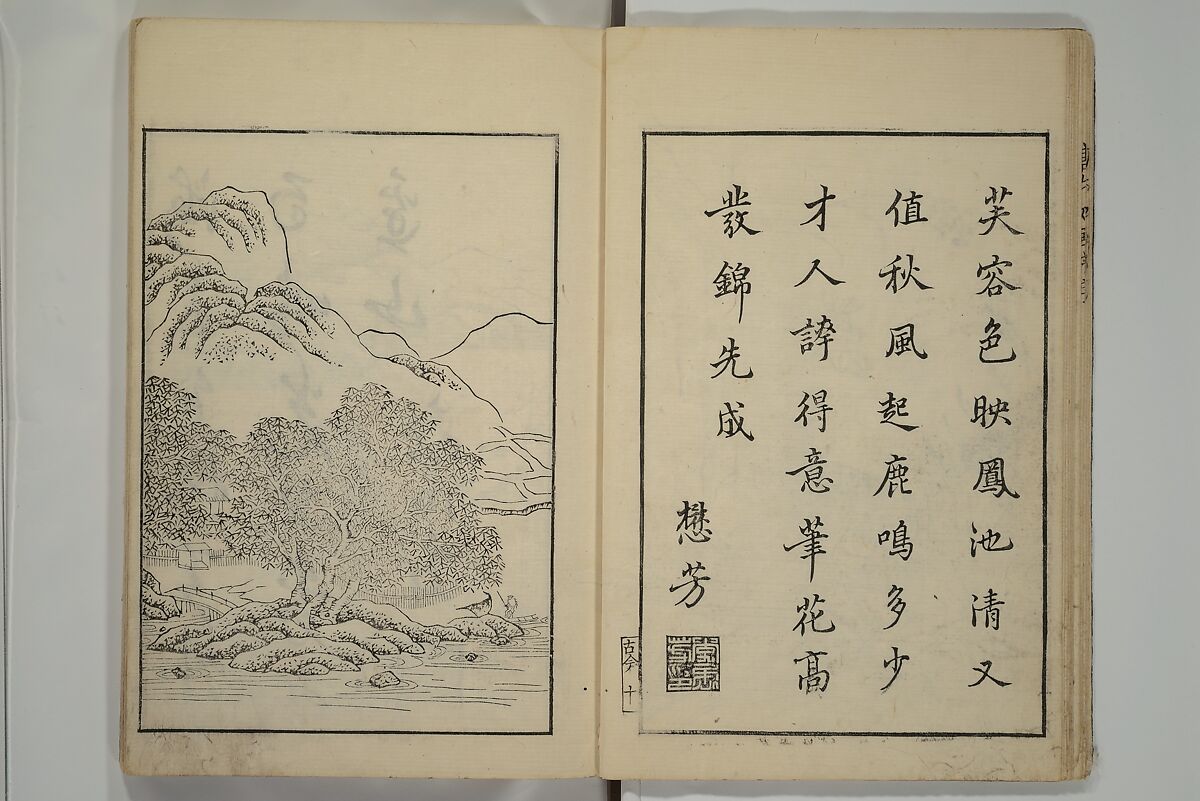 芙容色映鳳池清又
值秋風起鹿鳴多少
才人誇得意筆花高
發錦先成
懋芳
古今 十